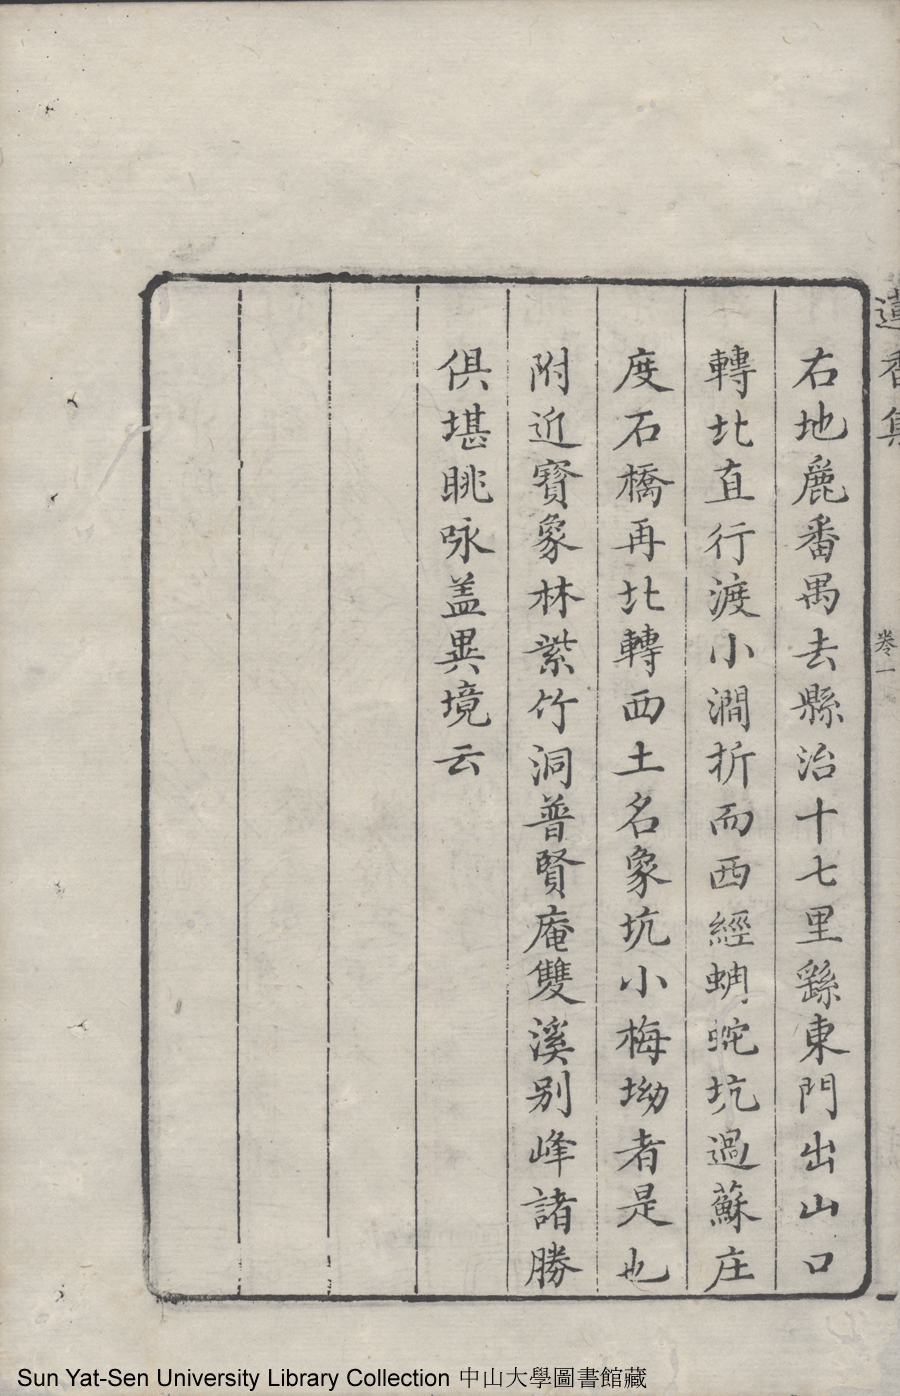 蓮香集
卷一
右地麗番禺去縣治十七里繇東門出山口
轉北直行渡小澗折而西經蚺蛇坑過蘇庄
度石橋再北轉西土名象坑小梅坳者是也
附近寶象林紫竹洞普賢庵雙溪别峰諸勝
俱堪眺咏盖異境云
Sun Yat-Sen University Library Collection 中山大學圖書館藏